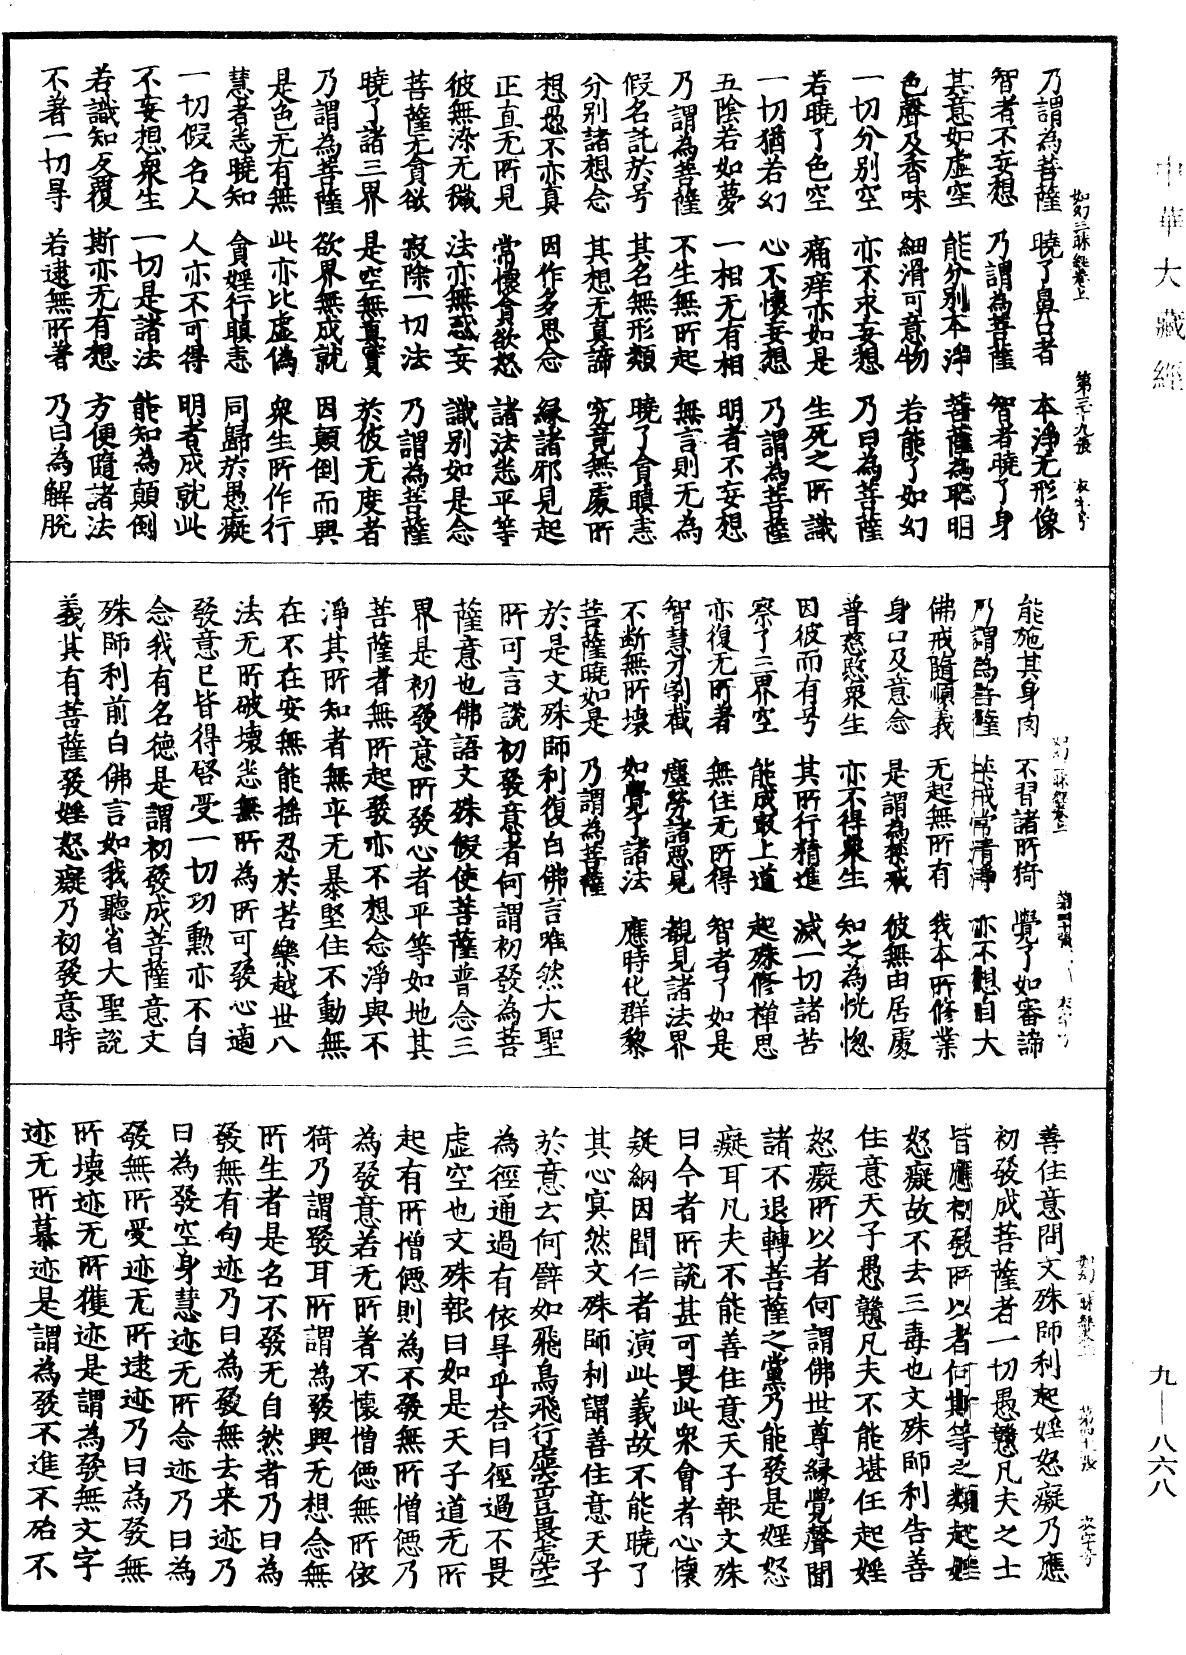 中華大藏經
如幻三昧經卷上 第三十九張
乃謂為菩薩 曉了鼻口者 本淨无形像
智者不妄想 乃謂為菩薩 智者曉了身
其意如虛空 能分別本淨 菩薩為恥
色聲及香味 細滑可意物 若能了如幻
一切分別空 亦不求妄想 乃曰為菩薩
若曉了色空 痛痒亦如是 生死之所識
一切猶若幻 心不懷妄想 乃謂為菩薩
五陰若如夢 一相无有相 明者不妄想
乃謂為菩薩 不生無所起 無言則无為
假名託於号 其名無形類 曉了貪瞋恚
分別諸想念 其想无真諦 究竟無處所
想愚不亦真 因作多思念 緣諸邪見起
正直无所見 常懷貪欲怒 諸法悉平等
彼無染无穢 法亦無惑妄 識別如是念
菩薩无貪欲 寂除一切法 乃謂為菩薩
曉了諸三界 是空無真實 於彼无度者
乃謂為菩薩 欲界無成就 因顛倒而興
是色无有無 此亦比虛偽 眾生所作行
慧者悉曉知 貪婬行瞋恚 同歸於愚癡
一切假名人 人亦不可得 明者成就此
不妄想眾生 一切是諸法 能知為顛倒
若識知反覆 斯亦无有想 方便隨諸法
不著一切㝵 若逮無所著 乃曰為解脫
能施其身肉 不習諸所猗 覺了如審諦
乃謂為菩薩 禁戒常清淨 亦不想自大
佛戒隨順義 无起無所有 我本所修業
身口及意念 是謂為禁戒 彼無由居處
普慈愍眾生 亦不得眾生 知之為恍惚
因彼而有号 其所行精進 滅一切諸苦
察了三界空 能成寂上道 起殊修禪思
亦復无所著 無住无所得 智者了如是
智慧刀割截 塵勞諸思見 觀見諸法界
不斷無所壞 如覺了諸法 應時化群黎
菩薩曉如是 乃謂為菩薩
於是文殊師利復白佛言唯然大聖
所可言說初發意者何謂初發為菩
薩意也佛語文殊假使菩薩普念三
界是初發意所發心者平等如地其
菩薩者無所起發亦不想念淨與不
淨其所知者無乎无暴堅住不動無
在不在安無能搖忍於苦樂越世八
法无所破壞悉無所為所可發心適
發意已皆得啓受一切功勳亦不自
念我有名德是謂初發成菩薩意文
殊師利前白佛言如我聽省大聖說
義其有菩薩發婬怒癡乃初發意時
善住意問文殊師利起婬怒癡乃應
初發成菩薩者一切愚戇凡夫之士
皆應初發所以者何斯等之類起婬
怒癡故不去三毒也文殊師利告善
住意天子愚戇凡夫不能堪任起婬
怒癡所以者何謂佛世尊緣覺聲聞
諸不退轉菩薩之黨乃能發是婬怒
癡耳凡夫不能善住意天子報文殊
曰今者所說甚可畏此眾會者心懷
疑網因聞仁者演此義故不能曉了
其心寞然文殊師利謂善住意天子
於意云何譬如飛鳥飛行虛空豈畏虛空
為徑通過有依㝵乎荅曰徑過不畏
虛空也文殊報曰如是天子道无所
起有所憎㥁則為不發無所憎㥁乃
為發意若无所著不懷憎㥁無所依
猗乃謂發耳所謂為發興无想念無
所生者是名不發无自然者乃曰為
發無有句迹乃曰為發無去来迹乃
曰為發空身慧迹无所念迹乃曰為
發無所受迹无所逮迹乃曰為發無
所壞迹无所獲迹是謂為發無文字
迹无所慕迹是謂為發不進不殆不
九—八六八